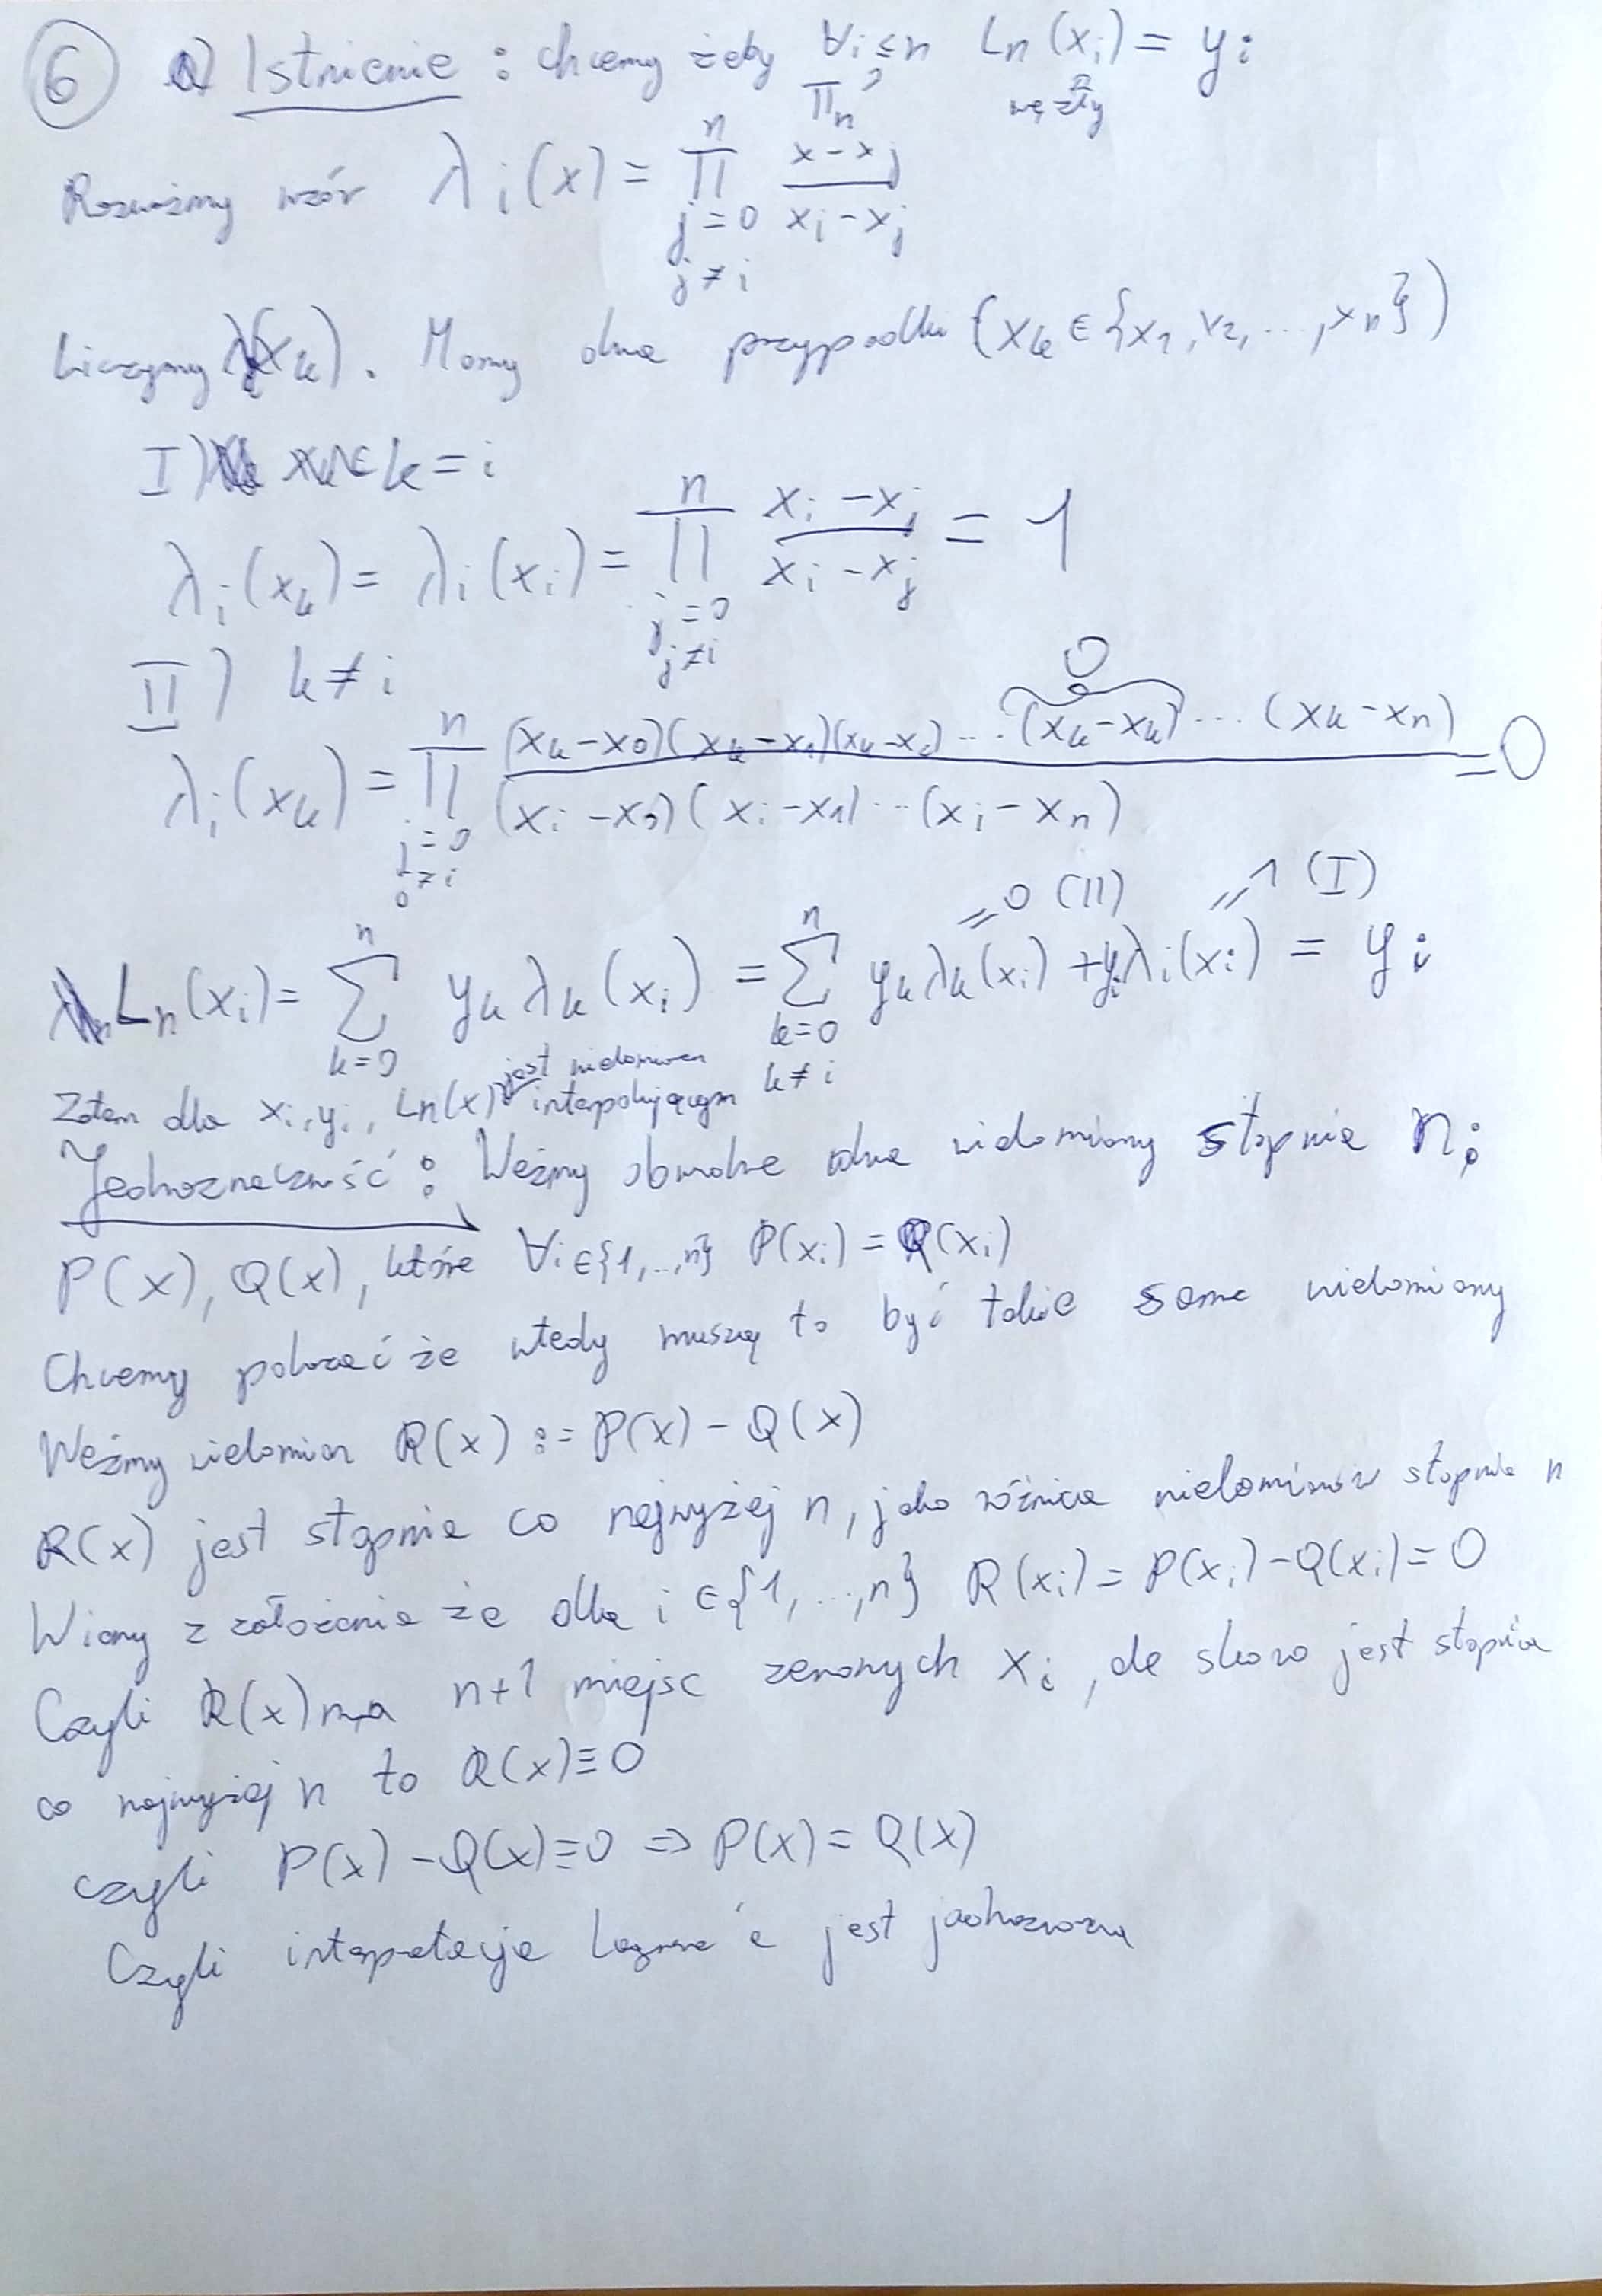 6 Istnienie : chcemy żeby ∀i≤n Ln(xi) = yi
∏n węzły
Rozważmy wzór λi(x) = n∏j=0 j≠i (x-xj)/(xi-xj)
Liczymy λi(xk). Mamy dwa przypadki (xk ∈ {x1, x2, ..., xn})
I) k = i
λi(xk) = λi(xi) = n∏j=0 j≠i (xi-xj)/(xi-xj) = 1
II) k ≠ i
0
λi(xk) = n∏j=0 j≠i (xk-x0)(xk-x1)(xk-x2)...(xk-xk)...(xk-xn) / (xi-x0)(xi-x1)...(xi-xn) = 0
=0 (II) =1 (I)
Ln(xi) = n∑k=0 yk λk(xi) = n∑k=0 k≠i yk λk(xi) + yi λi(xi) = yi
Zatem dla xi, yi, Ln(x) jest wielomianem interpolującym
Jednoznaczność : Weźmy dwa wielomiany stopnia n:
P(x), Q(x), które ∀i∈{1,..,n} P(xi) = Q(xi)
Chcemy pokazać że wtedy muszą to być takie same wielomiany
Weźmy wielomian R(x) := P(x) - Q(x)
R(x) jest stopnia co najwyżej n, jako różnica wielomianów stopnia n
Wiemy z założenia że dla i ∈{1,...,n} R(xi) = P(xi)-Q(xi) = 0
Czyli R(x) ma n+1 miejsc zerowych xi, ale skoro jest stopnia
co najwyżej n to R(x)≡0
czyli P(x) - Q(x)≡0 => P(x) = Q(x)
Czyli interpolacja jest jednoznaczna